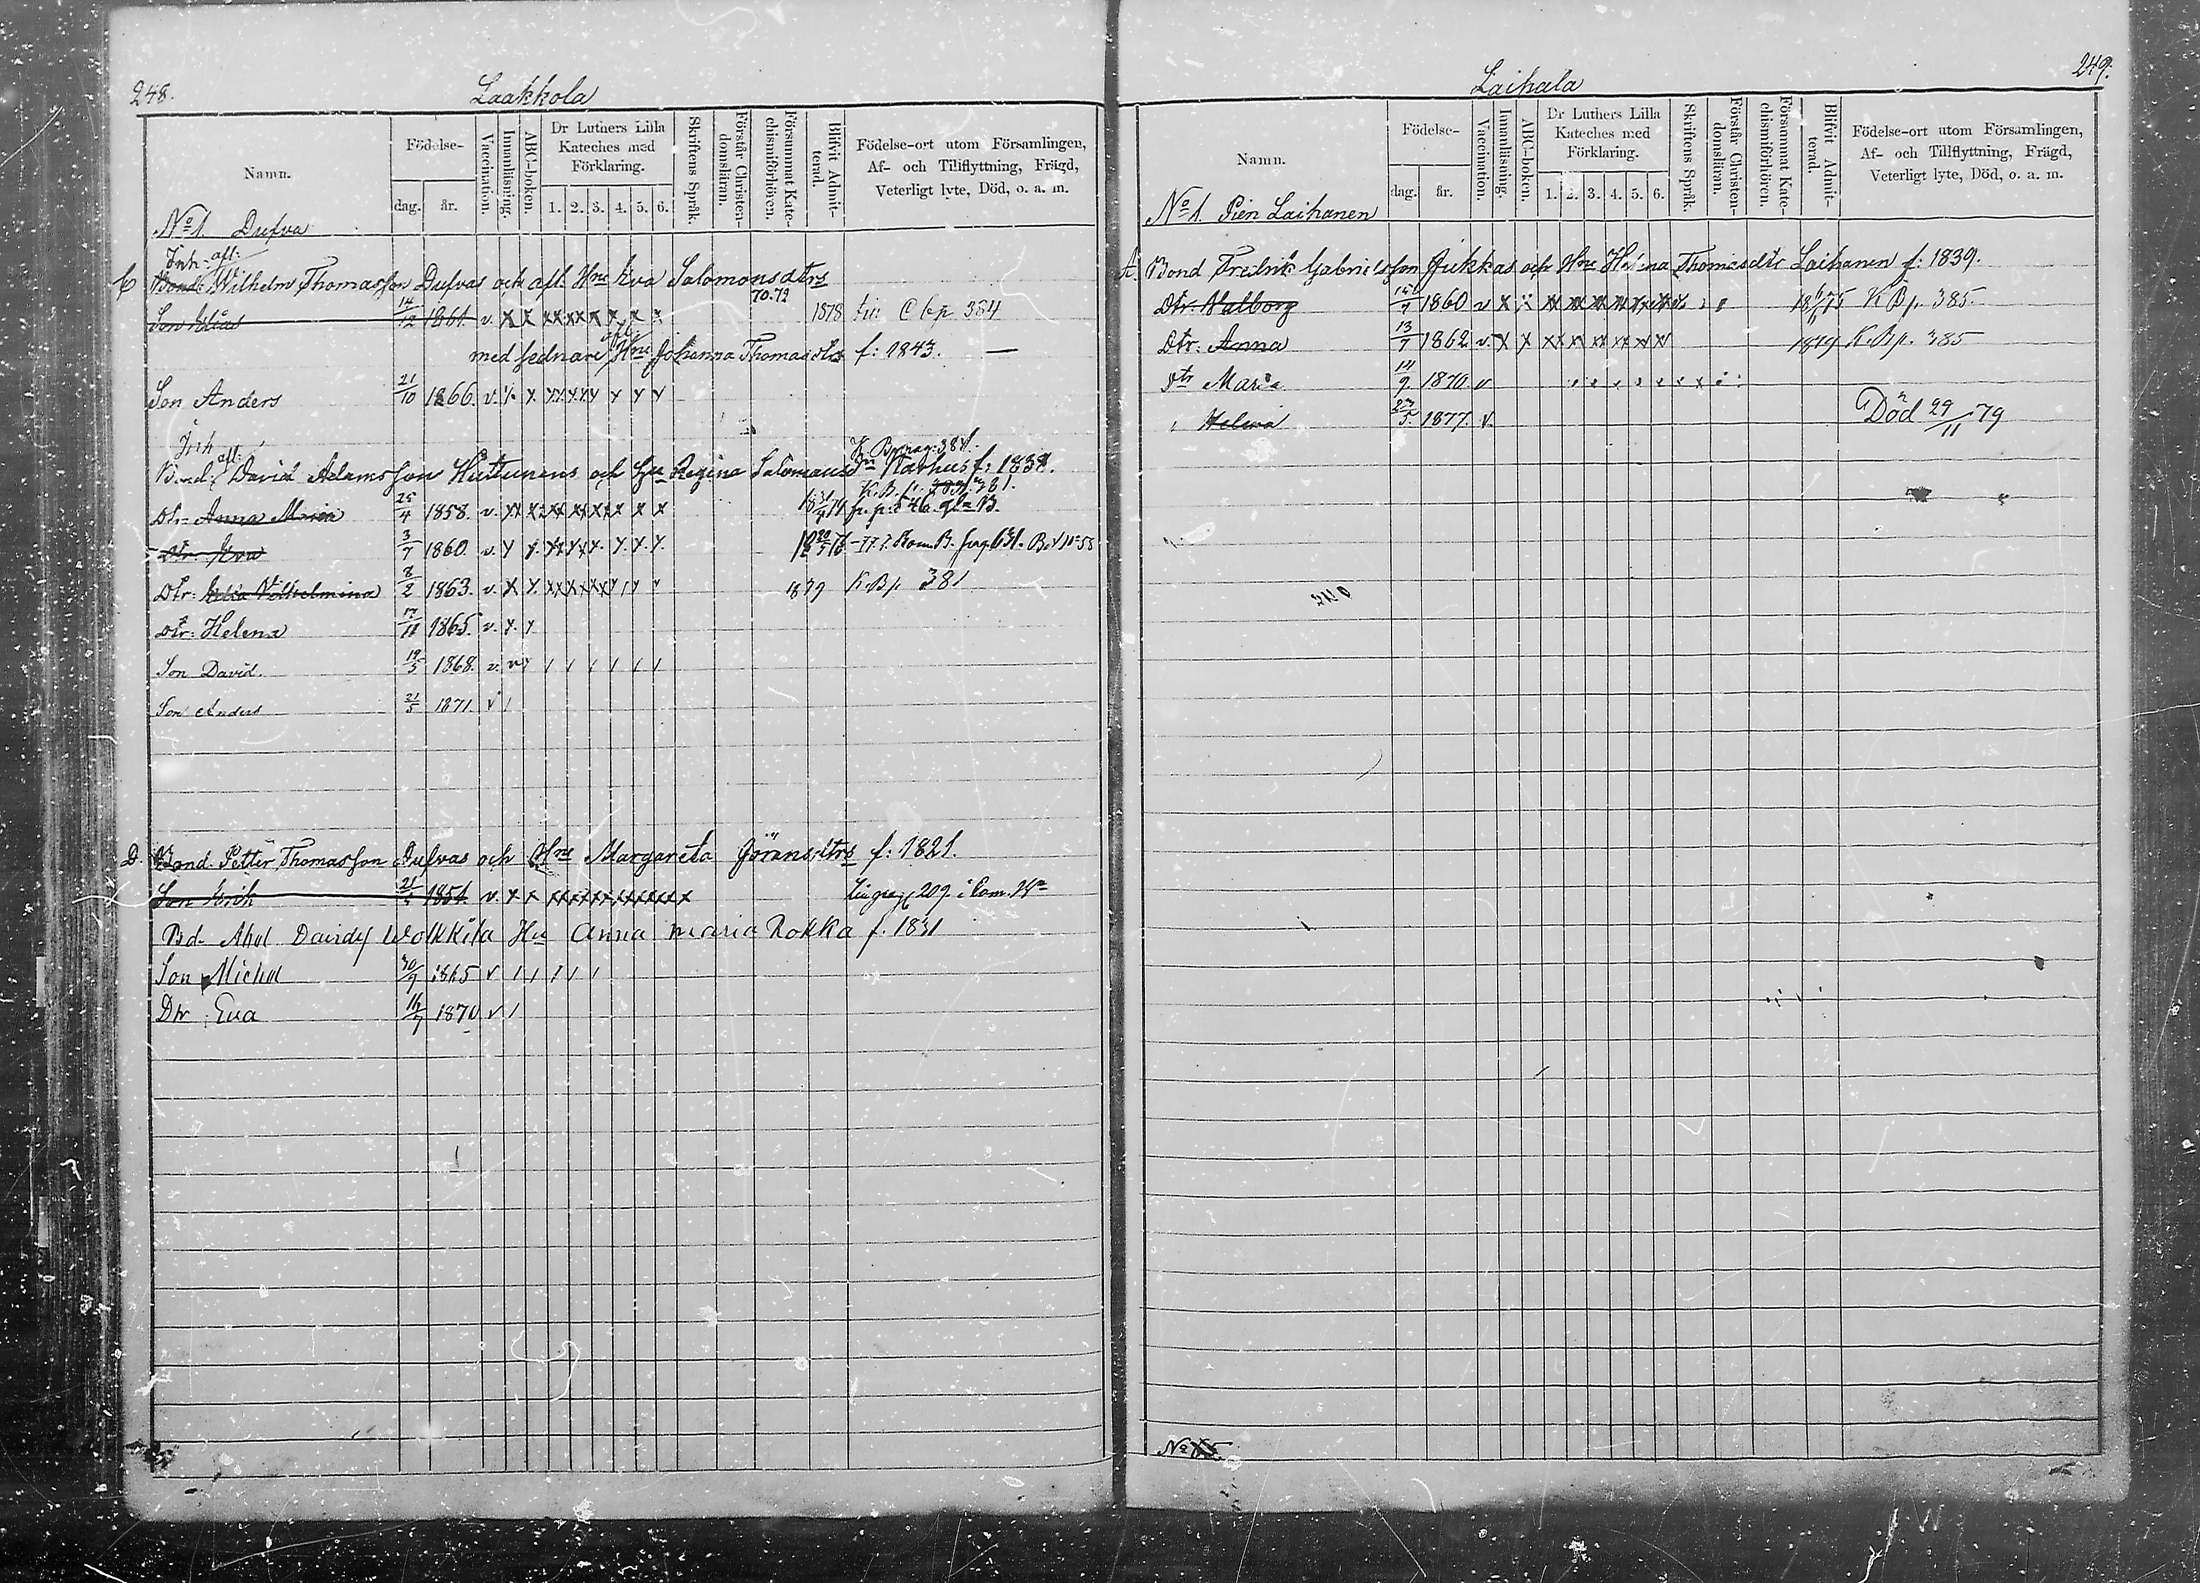 248.
Laakkola
Namn.
Födelse-
dag.
år.
Vaccination.
Innanläsning.
ABC-boken.
Dr Luthers Lilla
Kateches med
Förklaring.
1. 2. 3. 4. 5. 6.
Skriftens Språk.
Förstår Christen-
domsläran.
Försummat Kate-
chismiförhören.
Blifvit Admit-
terad.
Födelse-ort utom Församlingen,
Af- och Tillflyttning, Frägd,
Veterligt lyte, Död, o. a. m.
No 1. Dufva
Inh. afl:
C Bond: Wilhelm Thomasson Dufvas och afl. Hru Eva Salomonsdtrs
70.72
Son Elias 14/12 1861. v. x x xx xx x x x x 1878
med sednare afl: Hru Johanna Thomasdtr f: 1843. —
Son Anders 21/10 1866. v.
Inh afl:
Bond: David Adamsson Huttunens och Hu Regina f: 1838.
K. B. p. 381.
Dtr Anna Maria 25/4 1858. v.
Dtr. Eva 3/7 1860. v.
Dtr: Wilhelmina 8/2 1863. v. 1879 K. B p. 381
Dtr: Helena 17/11 1865. v. x x
Son David. 19/5 1868. v.
Son Anders 21/5 1871. v
D. Bond. Petter Thomasson Dufvas och Hru Margareta Göransdtrs f: 1821.
Son Erik 1854. v. x x 209. i Com.
Bd. Abel Davidsf Wokkila Hu Anna Maria Rokka f. 1831
Son Michel 30/9 1865 v
Dtr. Eva 16/7 1870 v
249.
Laihala
Namn.
Födelse-
dag.
år.
Vaccination.
Innanläsning.
ABC-boken.
Dr Luthers Lilla
Kateches med
Förklaring.
1. 2. 3. 4. 5. 6.
Skriftens Språk.
Förstår Christen-
domsläran.
Försummat Kate-
chismiförhören.
Blifvit Admit-
terad.
Födelse-ort utom Församlingen,
Af- och Tillflyttning, Frägd,
Veterligt lyte, Död, o. a. m.
No 1. Pien Laihanen
A. Bond Fredrik Gabrielsson Jukkas och Hru Helena Thomasdtr Laihanen f: 1839.
Dtr: Walborg 1860 v x K B p. 385.
Dtr: Anna 13/7 1862 v. x x xx x xx xx xx 1879 K. B p. 385
Dtr Maria 14/9 1870 v
Helena 23/5 1877. v. Död 29/11 79
No